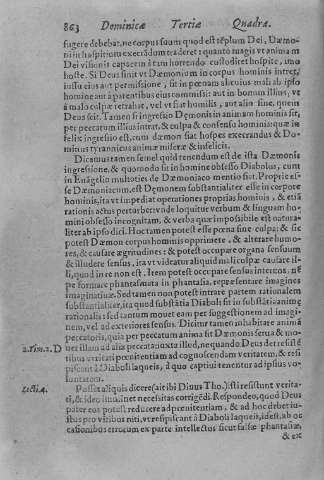 863 Dominicæ Tertiæ Quadra.
fugere debebat, ne corpus suum quod est tẽplum Dei, Dæmo-
ni in hospitium execrãdum traderet: quanto magis vt animam
Dei visionis capacem à tam horrendo custodiret hospite, imo
hoste. Si Deus sinit vt Dæmonium in corpus hominis intret,
iussu eius aut permissione, sit in pœnam alicuius mali ab ipso
homine aut à parentibus eius commissi: aut in bonum illius, vt
à malo culpæ retrahat, vel vt fiat humilis, aut alio fine, quem
Deus scit. Tamen si ingressio Dęmonis in animam hominis sit
per peccatum illius intrat, & culpa & consensu hominis: quæ in
felix ingressio est, cum dæmon fiat hospes execrandus & Do-
minus tyrannicus animæ miseræ & infelicis.
Dicamus tamen semel quid tenendum est de ista Dæmonis
ingressione, & quomodo sit in homine obsesso Diabolus, cum
in Euãgelio multoties de Dæmoniaco mentio fiat. Proprie es-
se Dæmoniacum, est Dęmonem substantialiter esse in corpore
hominis, ita vt impediat operationes proprias hominis, & etiã
rationis actus perturbet: vnde loquitur verbum & linguam ho-
mini obsesso incognitam, & verba quæ impossibile est natura-
liter ab ipso dici. Hoc tamen potest esse pœna sine culpa: & sic
potest Dæmon corpus hominis opprimere, & alterare humo-
res, & causare ægritudines: & potest occupare organa sensuum
& illudere sensus, ita vt videatur aliquid mali culpæ causare il-
li, quod in re non est. Item potest occupare sensus internos, nẽ
pe formare phantasmata in phantasia, repræsentare imagines
imaginatiuæ. Sed tamen non potest intrare partem rationalem
substantialiter, ita quod substãtia Diaboli sit in substãtia animę
rationalis: sed tantum mouet eam per suggestionem ad imagi-
nem, vel ad exteriores sensus. Dicitur tamen inhabitare animã
peccatoris, quia per peccatum anima sit Dæmonis serua & mo-
2. Tim. 2. D uet illam ad alia peccata iuxta illud, nequando Deus det resistẽ
tibus veritati pœnitentiam ad cognoscendam veritatem, & resi
piscant à Diaboli laqueis, à quo captiui tenentur ad ipsius vo-
luntatem.
Lect. 4. Posset aliquis dicere (ait ibi Diuus Tho.) isti resistunt verita-
ti, & ideo imminet necessitas corrigẽdi. Respondeo, quod Deus
pater eos potest reducere ad pœnitentiam, & ad hoc debet iu-
stus pro viribus niti, vt resipiscant à Diaboli laqueis, idest, ab oc
casionibus errorum ex parte intellectus sicut falsæ phantasiæ,
& ex